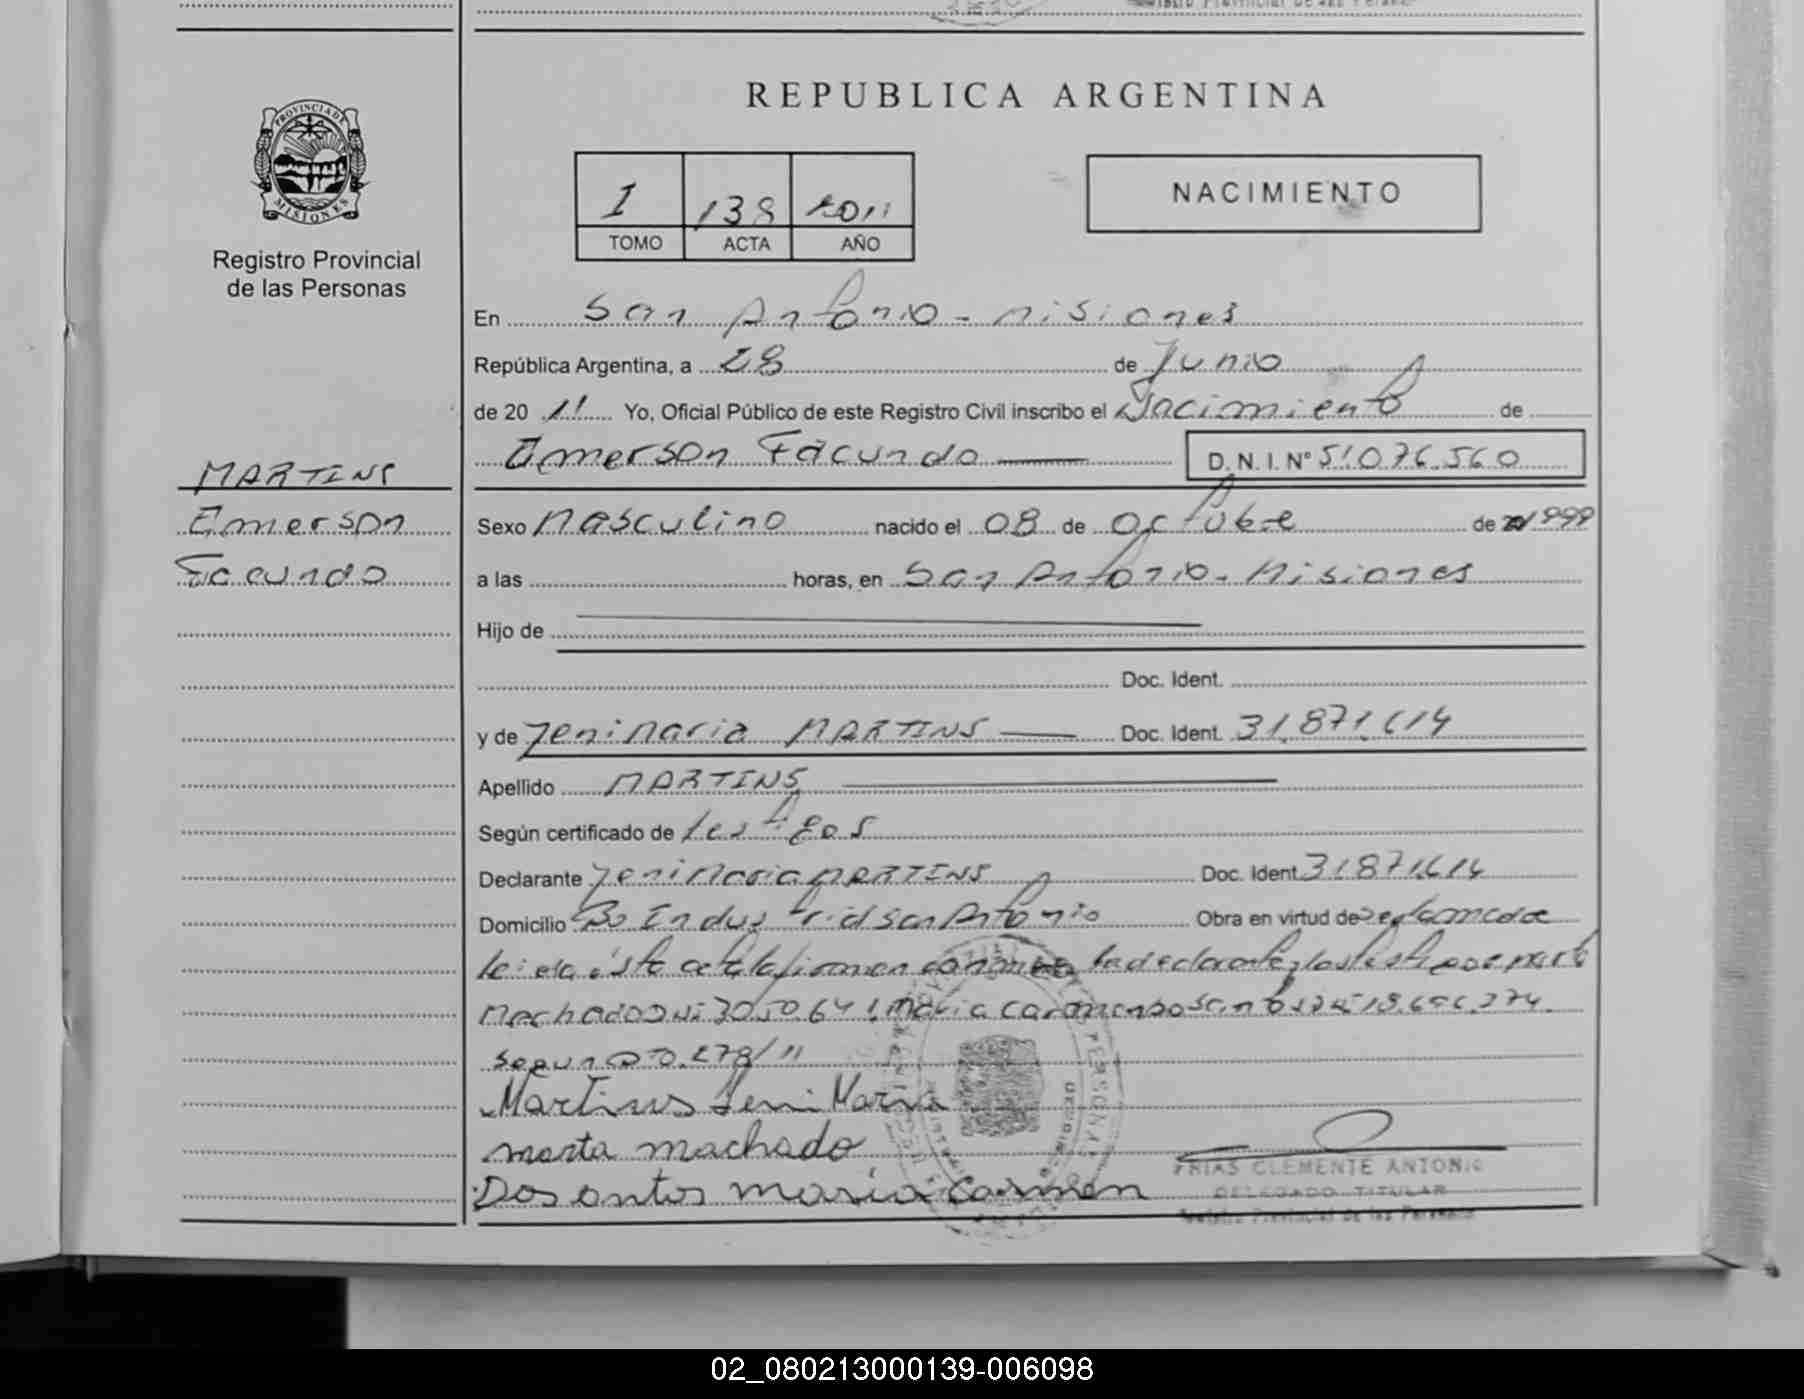 REPUBLICA ARGENTINA
PROVINCIA DE MISIONES
Registro Provincial
de las Personas
I 138 2011
TOMO ACTA AÑO
NACIMIENTO
En San Antonio - Misiones
República Argentina, a 28 de Junio
de 2011 Yo, Oficial Público de este Registro Civil inscribo el Nacimiento de
Emerson Facundo D.N.I. Nº 51.076.560
MARTINS
Emerson
Facundo
Sexo Masculino nacido el 08 de Octubre de 1999
a las horas, en San Antonio - Misiones
Hijo de
Doc. Ident.
y de Jeni Maria MARTINS Doc. Ident. 31.871.614
Apellido MARTINS
Según certificado de testigos
Declarante Jeni Maria MARTINS Doc. Ident. 31871.614
Domicilio Bo Industrial San Antonio Obra en virtud de
leida ésta acta la firman la declarante y los testigos
Machado DNI Maria Carmen 18.696.274.
Segun 278/11
Martins Jeni Maria
marta machado
Dos antos maria Carmen
FRIAS CLEMENTE ANTONIO
DELEGADO TITULAR
Registro Provincial de las Personas
02_080213000139-006098